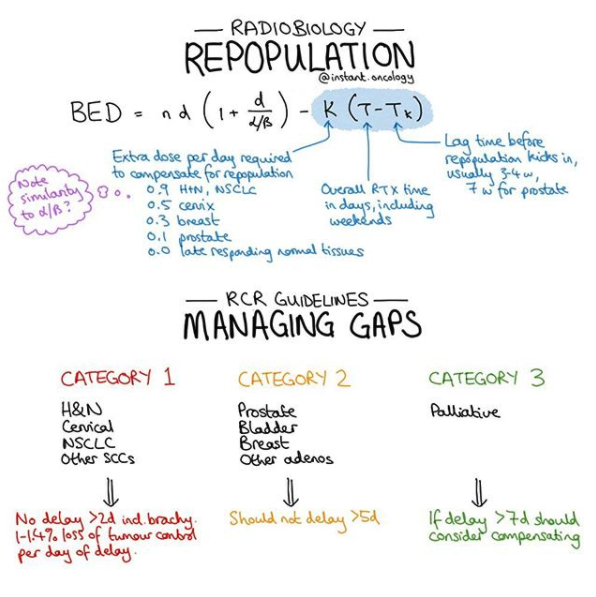 RADIOBIOLOGY
REPOPULATION
@instant.oncology
BED = nd (1 + d/α/β) - K (T-Tk)
Extra dose per day required
to compensate for repopulation
0.9 H+N, NSCLC
0.5 cervix
0.3 breast
0.1 prostate
0.0 late responding normal tissues
Note
similarity
to α/β?
Overall RTx time
in days, including
weekends
Lag time before
repopulation kicks in,
usually 3-4 w,
7 w for prostate
RCR GUIDELINES
MANAGING GAPS
CATEGORY 1
H&N
Cervical
NSCLC
Other SCCs
No delay >2d incl. brachy.
1-1.4% loss of tumour control
per day of delay.
CATEGORY 2
Prostate
Bladder
Breast
Other adenos
Should not delay >5d
CATEGORY 3
Palliative
If delay >7d should
consider compensating